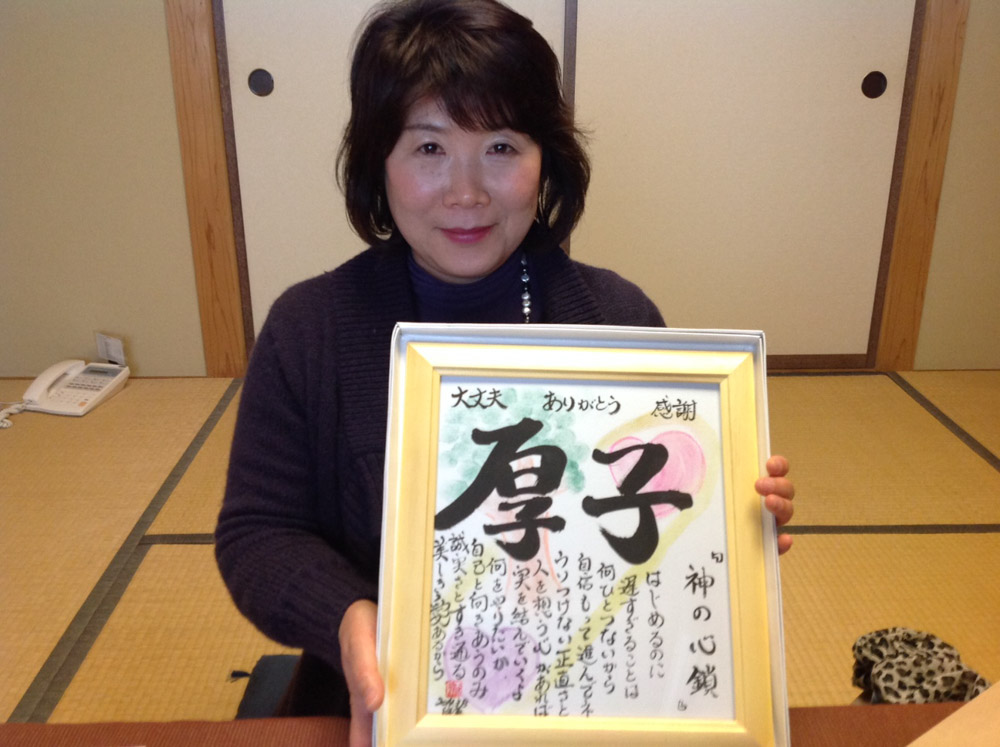 大丈夫 ありがとう 感謝
厚子
『神の心鎖』
はじめるのに
遅すぎることは
何ひとつないから
自信もって進んでネ
うそつけない正直さと
人を想う心があれば
実を結んでいくよ
何をやりたいか
自己と向きあうのみ
誠実さとすき通る
美しき あるから